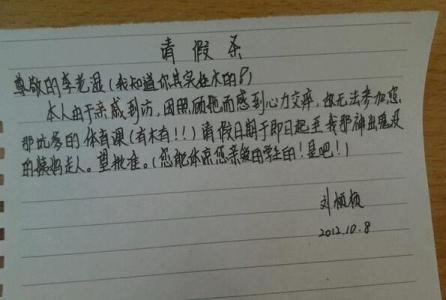 请假条
尊敬的李老湿(我知道你其实挺水的!)
本人由于亲戚到访,因照顾她而感到心力交瘁,故无法参加您
那坑爹的体育课(有木有!!)请假日期于即日起至我那神出鬼没
的姨妈走人。望批准。(您能体谅您亲爱的学生的!是吧!)
2012.10.8